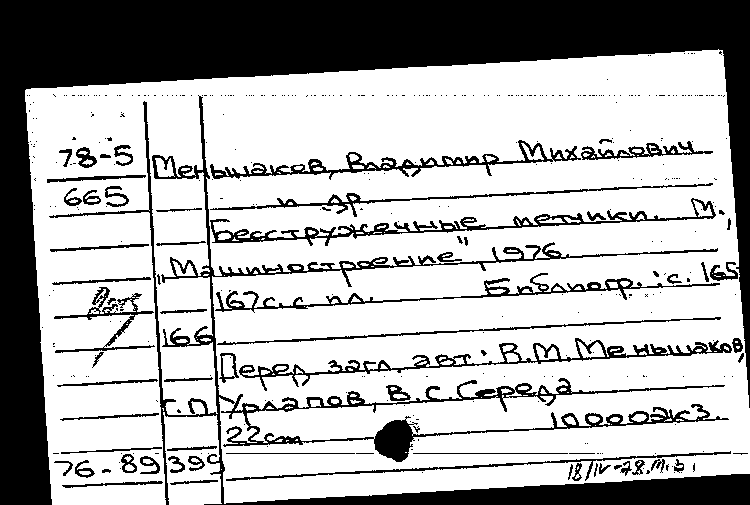 78-5 Меньшаков, Владимир Михайлович
665 и др.
Бесстружечные метчики. М.,
"Машиностроение", 1976.
167с. с ил. Библиогр.: с. 165
166.
Перед загл. авт.: В.М. Меньшаков,
Г.П. Урлапов, В.С. Середа.
22cm 10000экз.
76-89399
18/IV-78.М.Б.